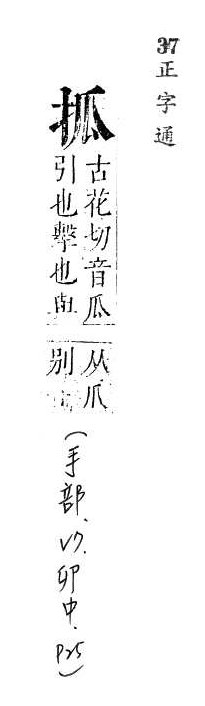 37正字通
抓
古花切音瓜
引也擊也與
从爪
别
(手部、V7.卯中.P25)